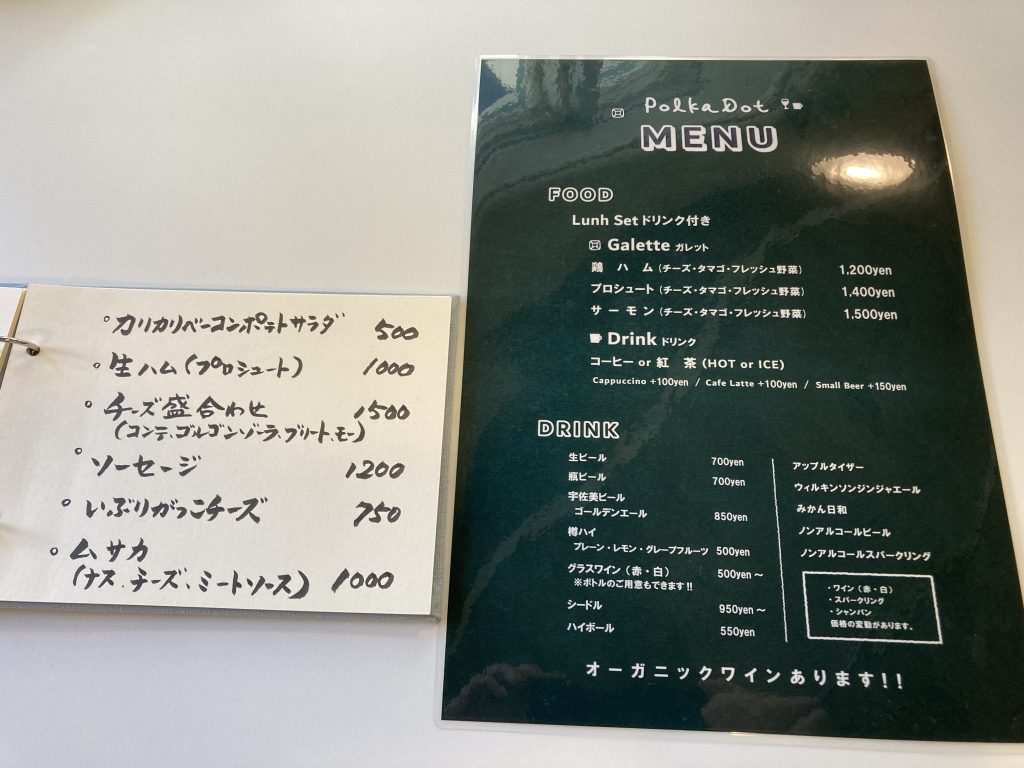 カリカリベーコンポテトサラダ 500
生ハム(プロシュート) 1000
チーズ盛合わせ 1500
(コンテ、ゴルゴンゾーラ、ブリート、モー)
ソーセージ 1200
いぶりがっこチーズ 750
ムサカ
(ナス、チーズ、ミートソース) 1000
PolkaDot
MENU
FOOD
Lunh Set ドリンク付き
Galette ガレット
鶏 ハ ム (チーズ・タマゴ・フレッシュ野菜) 1,200yen
プロシュート (チーズ・タマゴ・フレッシュ野菜) 1,400yen
サ ー モ ン (チーズ・タマゴ・フレッシュ野菜) 1,500yen
Drink ドリンク
コーヒー or 紅 茶 (HOT or ICE)
Cappuccino +100yen / Cafe Latte +100yen / Small Beer +150yen
DRINK
生ビール 700yen
瓶ビール 700yen
宇佐美ビール
ゴールデンエール 850yen
樽ハイ
プレーン・レモン・グレープフルーツ 500yen
グラスワイン (赤・白) 500yen〜
※ボトルのご用意もできます!!
シードル 950yen〜
ハイボール 550yen
アップルタイザー
ウィルキンソンジンジャエール
みかん日和
ノンアルコールビール
ノンアルコールスパークリング
・ワイン (赤・白)
・スパークリング
・シャンパン
価格の変動があります。
オーガニックワインあります!!